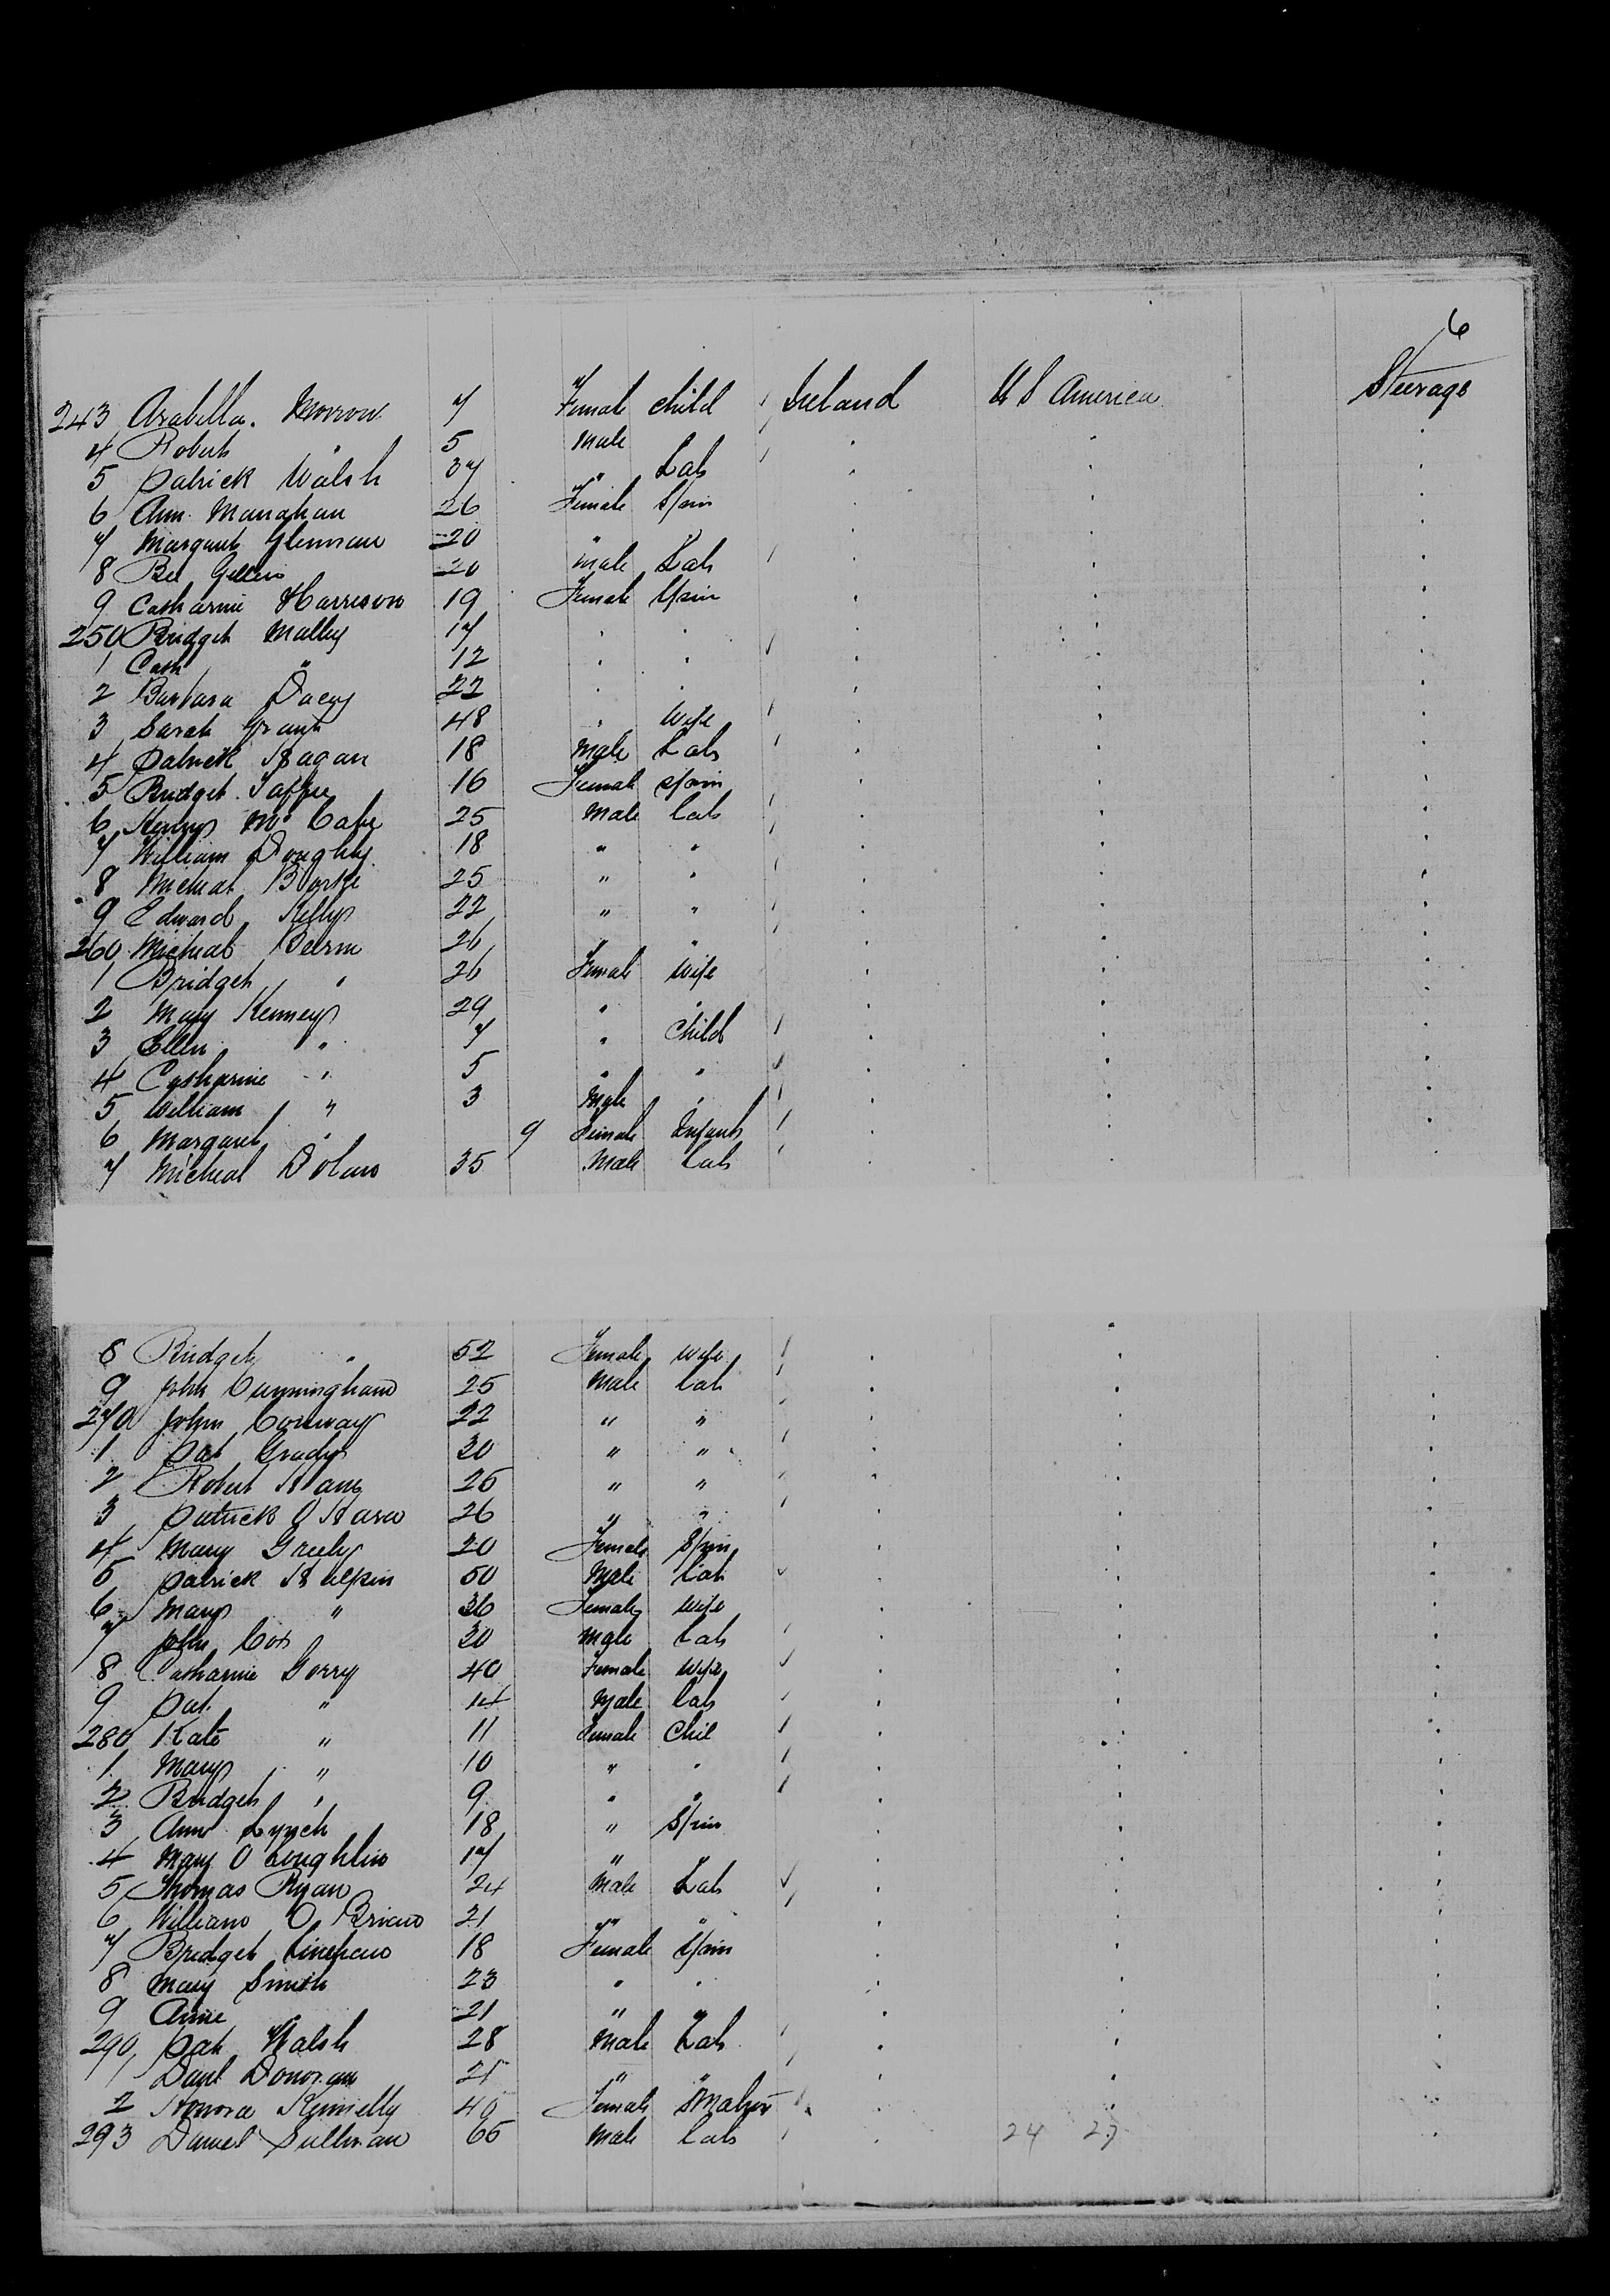 6
243 Arabella. Morrow 7 Female child Ireland U S America Steerage
4 Robert " 5 Male "
5 Patrick Walsh 37 " Lab
6 Ann Manahan 26 Female Spin
7 Margaret Glennan 20 " "
8 20 Male Lab
9 Catharine Harrison 19 Female Spin
250 Bridget Malley 17 " "
1 Cath " 12 " "
2 Barbara Dacey 22 " "
3 Sarah Grant 48 " Wife
4 Patrick Hagan 18 Male Lab
5 Bridget Taffee 16 Female Spin
6 Mc Cabe 25 Male Lab
7 William Doughty 18 " "
8 Micheal Burke 25 " "
9 Edward Kelly 22 " "
260 Micheal 26 " "
1 Bridget " 26 Female Wife
2 Mary Kenney 29 " "
3 Ellen " 7 " Child
4 Catharine " 5 " "
5 William " 3 Male "
6 Margaret " 9 Female Infant
7 Micheal Dolan 35 Male Lab
8 Bridget " 52 Female Wife
9 John Cunningham 25 Male Lab
270 John Conway 22 " "
1 Pat Grady 20 " "
2 Robert 25 " "
3 Patrick O Hara 26 " "
4 Mary Greely 20 Female Spin
5 Patrick Halpin 50 Male Lab
6 Mary " 36 Female Wife
7 John Cox 20 Male Lab
8 Catharine Gorry 40 Female Wife
9 Pat. " 14 Male Lab
280 Kate " 11 Female Chil
1 Mary " 10 " "
2 Bridget " 9 " "
3 Ann Lynch 18 " Spin
4 Mary O Loughlin 17 " "
5 Thomas Ryan 24 Male Lab
6 William O Brien 21 " "
7 Bridget Linehan 18 Female Spin
8 Mary Smith 23 " "
9 Anne " 21 " "
290 Pat Walsh 28 Male Lab
1 Danl Donovan 21 " "
2 Honora Kennelly 40 Female
293 Daniel Sullivan 65 Male Lab 24